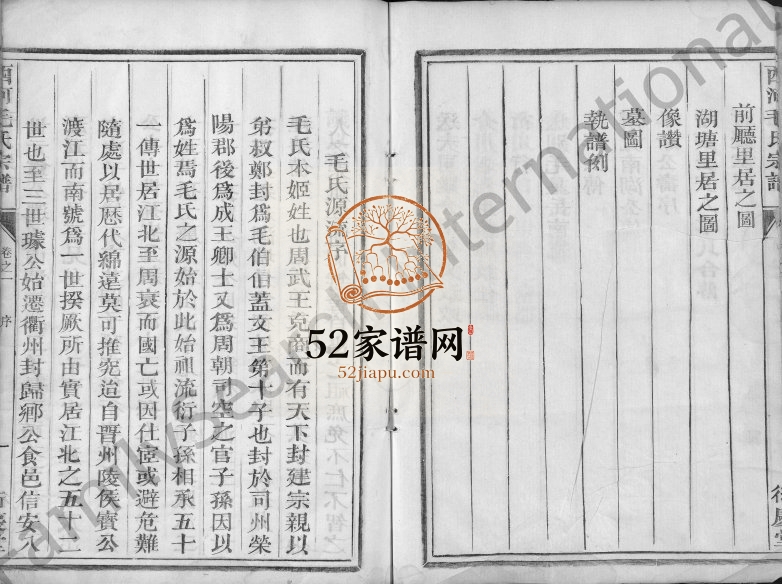 前廳里居之圖
湖塘里居之圖
像讚
墓圖
執譜例
西河毛氏宗譜
毛氏源流序
毛氏本姬姓也周武王克商而有天下封建宗親以
弟叔鄭封爲毛伯伯蓋文王第十子也封於司州榮
陽郡後爲成王卿士又爲周朝司空之官子孫因以
爲姓焉毛氏之源始於此始祖流衍子孫相承五十
一傳世居江北至周衰而國亡或因仕宦或避危難
隨處以居歷代綿遠莫可推究迨自晋州陵侯寳公
渡江而南號爲一世揆厥所由實居江北之五十二
世也至三世璩公始遷衢州封歸鄉公食邑信安入
西河毛氏宗譜
卷之一
序
一
52家谱网
52jiapu.com
FamilySearch International